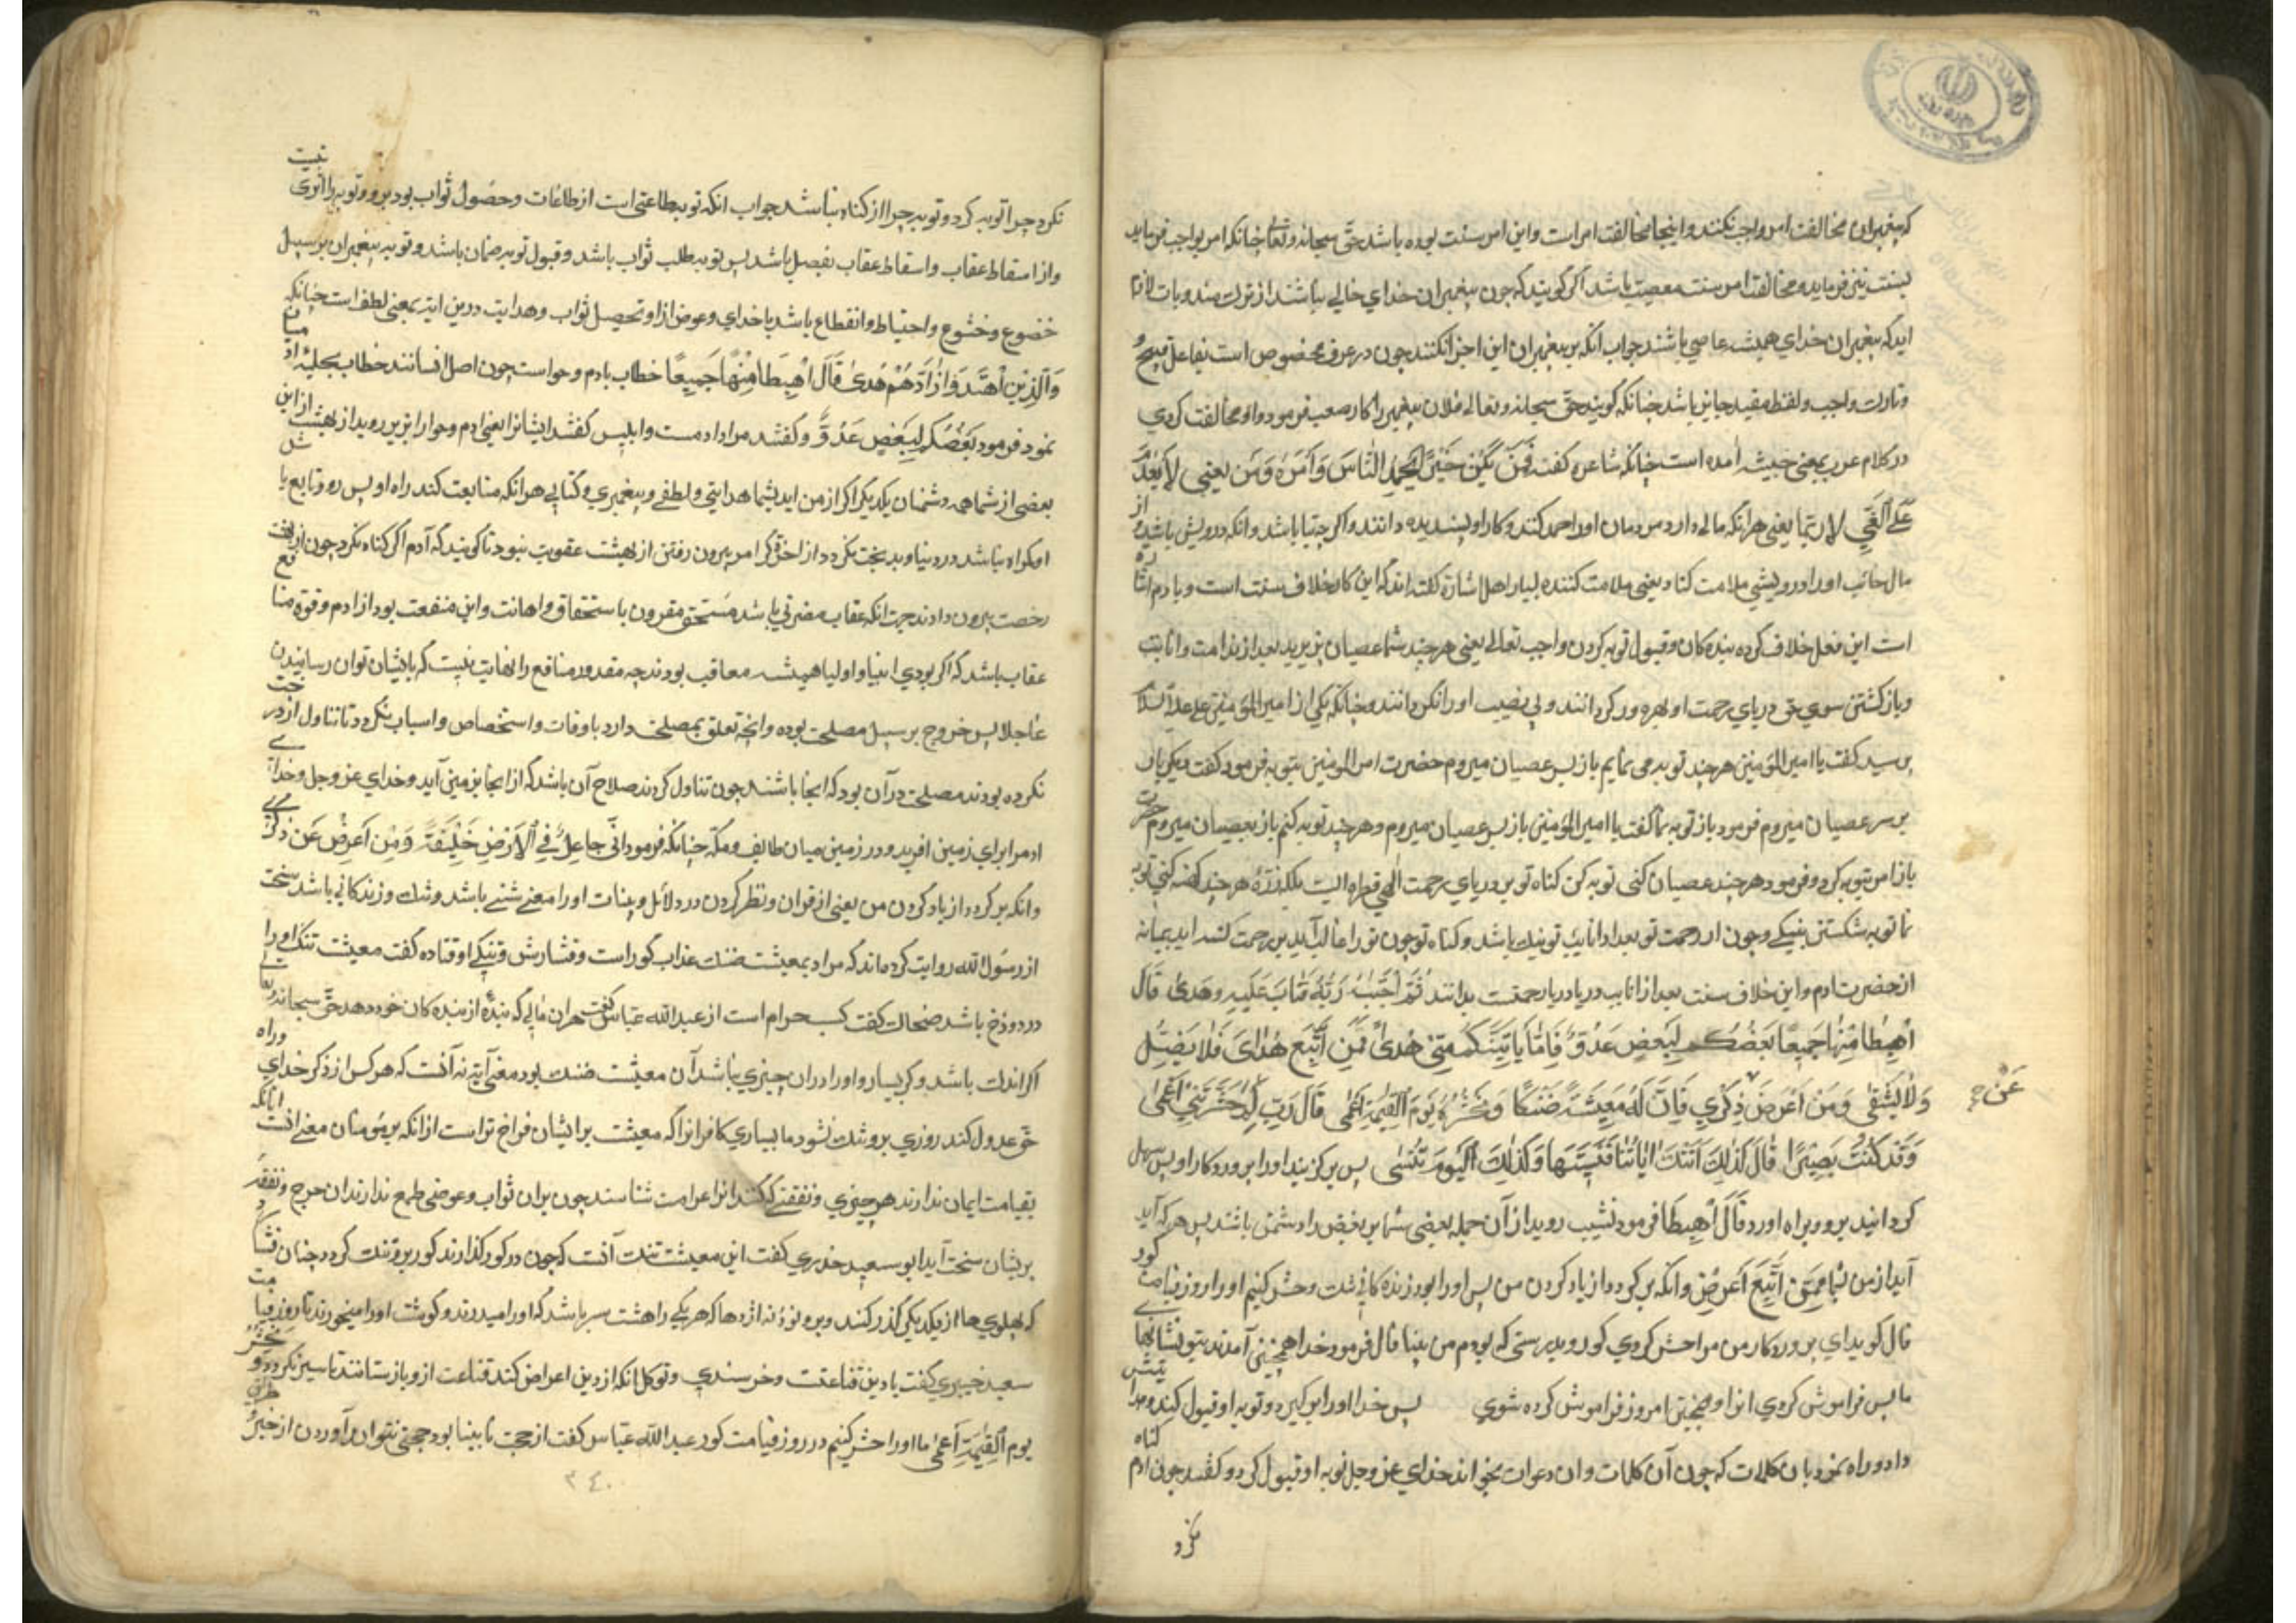 که پیغمبران مخالفت امر واجب نکنند و اینجا مخالفت امر است و این امر سنت بوده باشد حق سبحانه و تعالی چنانکه امر بواجب فرماید
بسنت نیز فرماید و مخالفت امر سنت معصیت باشد اگر گویند که چون پیغمبران خدای خالی نباشند از ترک مندوبات لازم
اید که پیغمبران خدای همیشه عاصی باشند جواب انکه بر پیغمبران این اجرا نکنند چون در عرف مخصوص است بفاعل قبیح
و تارک واجب و لفظ مقید جایز باشد چنانکه گویند حق سبحانه و تعالی فلان پیغمبر را کار صعب فرمود و او مخالفت کردی
در کلام عرب بمعنی خیبت امده است چنانکه شاعر گفت فَمَن یَلقَ خَیرًا یَحمَدِ النّاسَ وَاَمرَهُ وَمَن یعنی لا یَعدَم
عَلَی الغَیِّ لائِمًا یعنی هرانکه مالی دارد مردمان اورا حمد کنند و کار او پسندیده دانند و اگر چه تباه باشد وانکه درویش باشد و از
مال خائب اورا در ویشی ملامت کناد یعنی ملامت کننده بسیار اهل اشاره گفته اند که این کار خلاف سنت است و بادم اشاره
است این فعل خلاف کرده بنده کان و قبول توبه کردن واجب تعالی یعنی هر چند شما عصیان بزیرید بعد از ندامت و انابت
و باز گشتن سوی حق دریای رحمت او بهره ور گردانند و بی نصیب اورا نگردانند و چنانکه یکی از امیر المؤمنین علی علیه السلام
پرسید گفت یا امیر المؤمنین هر چند توبه می نمایم باز بسر عصیان میروم حضرت امیر المومنین بتوبه فرمود گفت دیگر باز
بر سر عصیان میروم فرمود باز توبه نما گفت یا امیر المؤمنین باز بسر عصیان میروم و هر چند توبه کنم باز بعصیان میروم حضرت
باز امر بتوبه کرد و فرمود هر چند عصیان کنی توبه کن گناه تو بر دریای رحمت الهی قطره ایست بلکه ذرّه هر چند گنه کنی توبه
نما توبه شکستن بنیکی و چون از رحمت تو بعد از انابت تو نیک باشد و گناه تو چون تورا غالب آید بر رحمت
از حضرت ادم و این خلاف سنت بعد از انابت دریا دریا رحمتست بدانند ثُمَّ اجتَبٰهُ رَبُّهُ فَتابَ عَلَیهِ وهَدیٰ قالَ
اهبِطا مِنها جَمیعًا بَعضُکُم لِبَعضٍ عَدُوٌّ فَاِمّا یَاتِیَنَّکُم مِنّی هُدیً فَمَنِ اتَّبَعَ هُدایَ فَلا یَضِلُّ
وَلا یَشقیٰ وَمَن اَعرَضَ ذِکری فَاِنَّ لَهُ مَعیشَةً ضَنکًا وَنَحشُرُهُ یَومَ القِیٰمَةِ اَعمیٰ قالَ رَبِّ لِمَ حَشَرتَنی اَعمیٰ
عَن صح
وَقَد کُنتُ بَصیرًا قالَ کَذٰلِکَ اَتَتکَ اٰیاتُنا فَنَسیتَها وَکَذٰلِکَ الیَومَ تُنسیٰ پس برگزیند اورا پروردکار او پس سهل
گردانید برو و براه اورد قالَ اهبِطا فرمود نشیب روید از آن جمله بعضی شما بر بعضی را دشمن باشند پس هر که آید
آید از من شما فَمَنِ اتَّبَعَ اَعرَضَ وانکه بر گردد از یاد کردن من پس اورا بود زنده کانی تنک و حشر کنیم اورا روز قیامت کور
قال گوید ای پروردکار من مرا حشر کردی کور و بدرستی که بودم من بینا قال فرمود خدا همچنین آمدند بتو نشانهای
ما پس فراموش کردی انرا و همچنین امروز فراموش کرده شوی پس خدا اورا برگیرد و توبه او قبول کند و هدایتش
داد و راه نمود بان کلمات که چون آن کلمات و ان دعوات بخواند خدای عز و جل توبه او قبول کرد و گفتند چون ادم گناه
نکرد
نکرد چرا توبه کرد و توبه چرا از گناه نباشد جواب انکه توبه طاعتی است از طاعات و حصول ثواب بود برو و توبه را اثری نیست
واز اسقاط عقاب و اسقاط عقاب بفضل باشد پس توبه طلب ثواب باشد و قبول توبه ضمان باشد و توبه پیغمبران بر سبیل
خضوع و خشوع و احتیاط و انقطاع باشد با خدای و عوض ازاو تحصیل ثواب و هدایت درین ایته بمعنی لطف است چنانکه
وَالَّذینَ اهتَدَوا زادَهُم هُدیً قالَ اهبِطا مِنها جَمیعًا خطاب بادم و حواست چون اصل انسانند خطاب بجملهٔ اد میان
نمود فرمود بَعضُکُم لِبَعضٍ عَدُوٌّ و گفتند مراد ادمست و ابلیس گفتند ایشانرا یعنی ادم و حوا را بزیر روید از بهشت از این
بعضی از شما همه دشمنان یکدیگر اگر از من اید بشما هدایتی و لطفی و پیغمبری و کتابی هرانکه متابعت کند راه او پس رو و تابع باشد
او گمراه نباشد در دنیا و بدبخت نگردد از اخرت بیرون رفتن از بهشت عقوبت نبود تا گویند که آدم اگر گناه نکرد چون از بهشت
رخصت بیرون دادند جهت انکه عقاب مضرتی باشد مستحق مقرون باستخفاف و اهانت و این منفعت بود از ادم و قوة منافع
عقاب باشد که اگر بودی انبیا و اولیا همیشه معاقب بودند چه مقدور منافع را نهایت نیست که بایشان توان رسانیدن
عاجلا پس خروج بر سبیل مصلحت بوده وانچه تعلق بمصلحت دارد باوقات و اشخاص و اسباب بگردد تا تناول از درخت
نکرده بودند مصلحت در آن بود که انجا باشند چون تناول کردند صلاح آن باشد که از انجا بزمین آید و خدای عز و جل
ادم را برای زمین افرید و در زمین میان طایف و مکّه چنانکه فرمود اِنّی جاعِلٌ فِی الاَرضِ خَلیفَةً وَمَن اَعرَضَ عَن ذِکری
وانکه برگردد از یاد کردن من یعنی از قران و نظر کردن در دلائل و بینات اورا معیشتی باشد تنک و زندکانی باشد سخت
از رسول الله روایت کرده اند که مراد بمعیشت ضنک عذاب گور است و فشارش و تنگی او قتاده گفت معیشت تنک اورا
در دوزخ باشد ضحاک گفت کسب حرام است از عبدالله عباس گفت هران مالی که بنده از بنده کان خود دهد حق سبحانه و تعالی
اگر اندک باشد و گر بسیار و اورا دران چیزی نباشد آن معیشت ضنک بود معنی آیة نه آنست که هر کس از ذکر خدای و راه
حق عدول کند روزی برو تنک نشود ما بسیاری کافرانرا که معیشت بر ایشان فراخ تراست از انکه بر مومنان معنی انست انانکه
بقیامت ایمان ندارند هر چیزی و نفقتی که کنند انرا غرامت شناسند چون بران ثواب و عوضی طمع ندارند ان خرج و نفقه
بریشان سخت آید ابو سعید خدری گفت این معیشت تنک آنست که چون در گور گذارند گور برو تنک گردد چنان فشارد
که پهلوی ها از یکدیگر گذر کنند و برو نود نه اژدها که هر یکی را هشت سر باشد که اورا میدرند و گوشت اورا میخورند تا روز قیامت
سعید جبیری گفت با دین قناعت و خرسندی و توکل انکه از دین اعراض کند قناعت ازو باز ستانند تا سیر نگردد وَنَحشُرُهُ
یَومَ القِیٰمَةِ اَعمیٰ ما اورا حشر کنیم در روز قیامت کور عبدالله عباس گفت از حجت نابینا بود حجتی نتوان آوردن از
۳۴۰